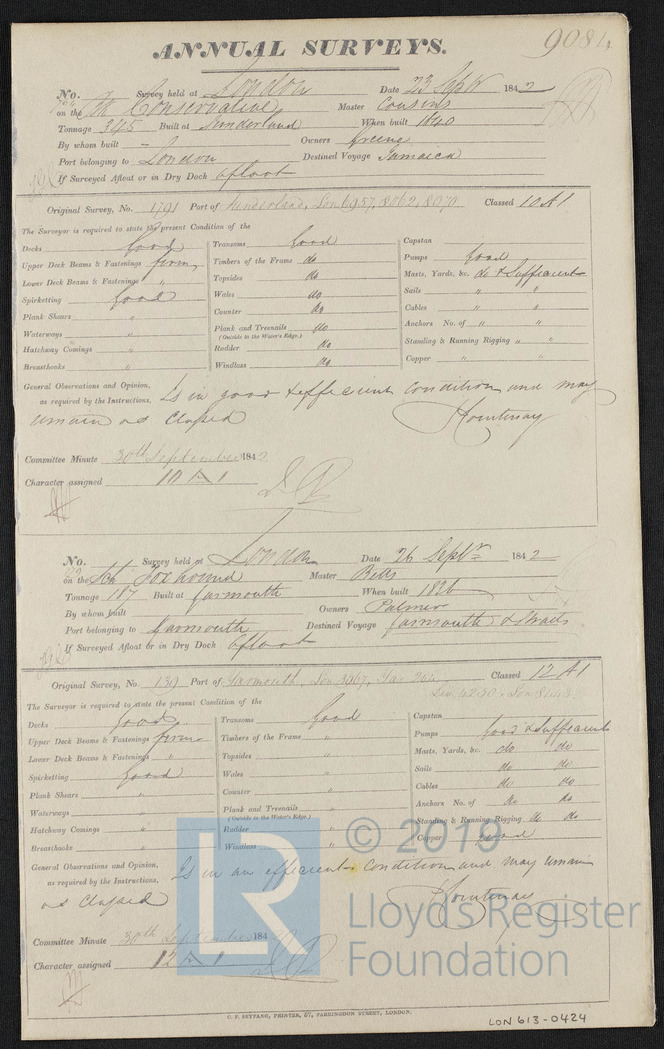 ANNUAL SURVEYS.
9081
No. Survey held at London Date 23 Septr 1842
on the Conservative Master Cousins
Tonnage 345 Built at Sunderland When built 1840
By whom built — Owners Greene
Port belonging to London Destined Voyage Jamaica
If Surveyed Afloat or in Dry Dock Afloat
Original Survey, No. 1791 Port of Sunderland, Lon 6957, 8062, 8070 Classed 10 A 1
The Surveyor is required to state the present Condition of the
Decks good Transoms good Capstan
Upper Deck Beams & Fastenings firm Timbers of the Frame do Pumps good
Lower Deck Beams & Fastenings " Topsides do Masts, Yards, &c. do & Sufficient
Spirketting good Wales do Sails " "
Plank Shears " Counter do Cables " "
Waterways " Plank and Treenails do Anchors No. of " "
(Outside to the Water's Edge.)
Hatchway Comings " Rudder do Standing & Running Rigging " "
Breasthooks " Windlass do Copper " "
General Observations and Opinion, Is in good & efficient condition and may
as required by the Instructions,
remain as Classed
Committee Minute 30th September 1842
Character assigned 10 A 1
No. Survey held at London Date 26 Septr 1842
on the Foxhound Master Betts
Tonnage 187 Built at Yarmouth When built 1826
By whom built Owners Palmer
Port belonging to Yarmouth Destined Voyage Yarmouth & Straits
If Surveyed Afloat or in Dry Dock Afloat
Original Survey, No. 139 Port of Yarmouth, Lon 3067, Yar 244, Classed 12 A 1
The Surveyor is required to state the present Condition of the
Decks good Transoms Good Capstan
Upper Deck Beams & Fastenings firm Timbers of the Frame " Pumps good & Sufficient
Lower Deck Beams & Fastenings " Topsides " Masts, Yards, &c. do do
Spirketting good Wales " Sails do do
Plank Shears " Counter " Cables do do
Waterways " Plank and Treenails " Anchors No. of do do
(Outside to the Water's Edge.)
Hatchway Comings " Rudder Standing & Running Rigging do do
Breasthooks " Windlass Copper good
General Observations and Opinion, Is in an efficient condition and may remain
as required by the Instructions,
as Classed
Committee Minute 30th September 184
Character assigned 12 A 1
LR © 2019
Lloyd's Register
Foundation
C. F. SEYFANG, PRINTER, 57, FARRINGDON STREET, LONDON.
LON 613-0424